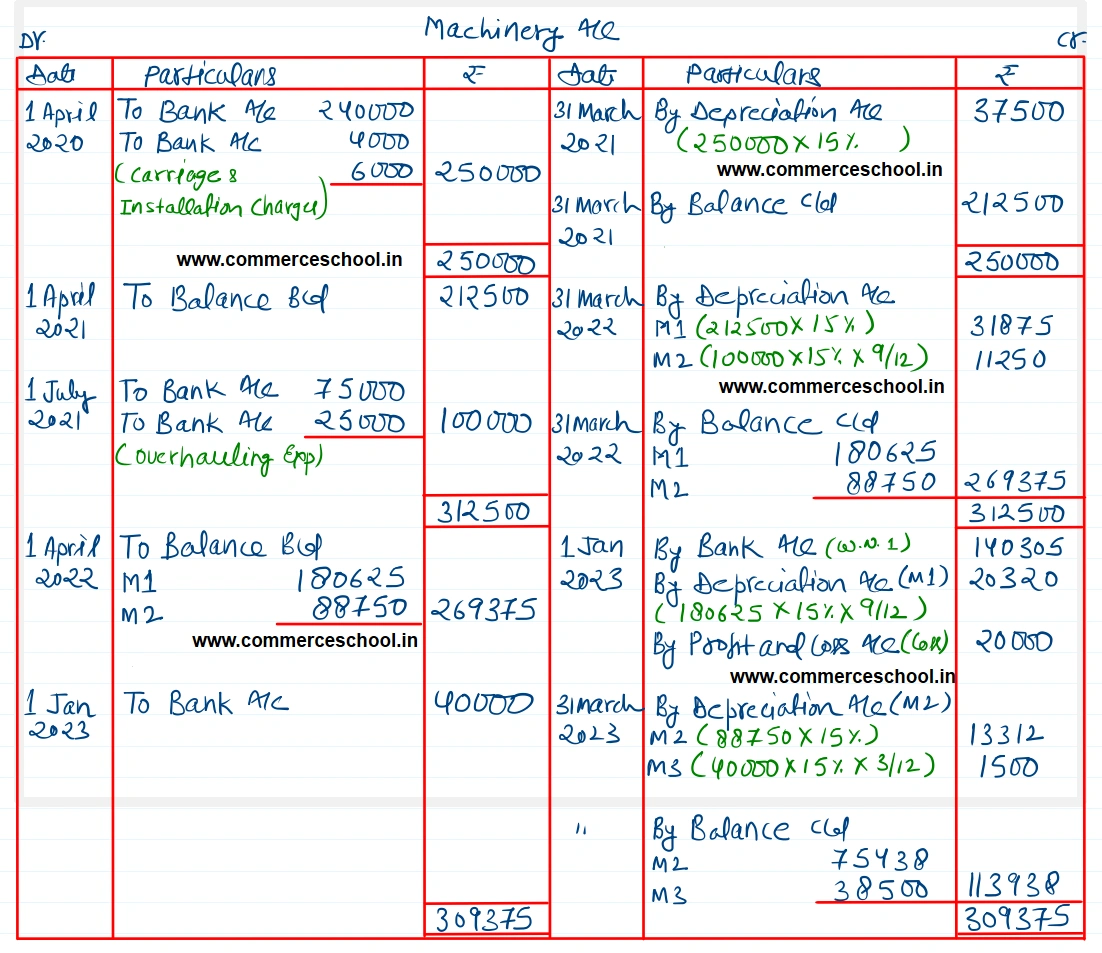 Machinery A/c
Dr. Cr.
Date Particulars ₹ Date Particulars ₹
1 April To Bank A/c 240000 31 March By Depreciation A/c 37500
2020 To Bank A/c 4000 2021 (250000 X 15%)
(Carriage & 6000 250000 www.commerceschool.in
Installation Charges) 31 March By Balance c/d 212500
2021
www.commerceschool.in 250000 250000
1 April To Balance B/d 212500 31 March By Depreciation A/c
2021 2022 M1 (212500 X 15%) 31875
M2 (100000 X 15% X 9/12) 11250
1 July To Bank A/c 75000 www.commerceschool.in
2021 To Bank A/c 25000 100000 31 March By Balance c/d
(overhauling Exp) 2022 M1 180625
M2 88750 269375
312500 312500
1 April To Balance B/d 1 Jan By Bank A/c (W.N.1) 140305
2022 M1 180625 2023 By Depreciation A/c (M1) 20320
M2 88750 269375 (180625 X 15% X 9/12)
www.commerceschool.in By Profit and Loss A/c (Loss) 20000
www.commerceschool.in
1 Jan To Bank A/c 40000 31 March By Depreciation A/c (M2)
2023 2023 M2 (88750 X 15%) 13312
M3 (40000 X 15% X 3/12) 1500
" By Balance c/d
M2 75438
M3 38500 113938
309375 309375